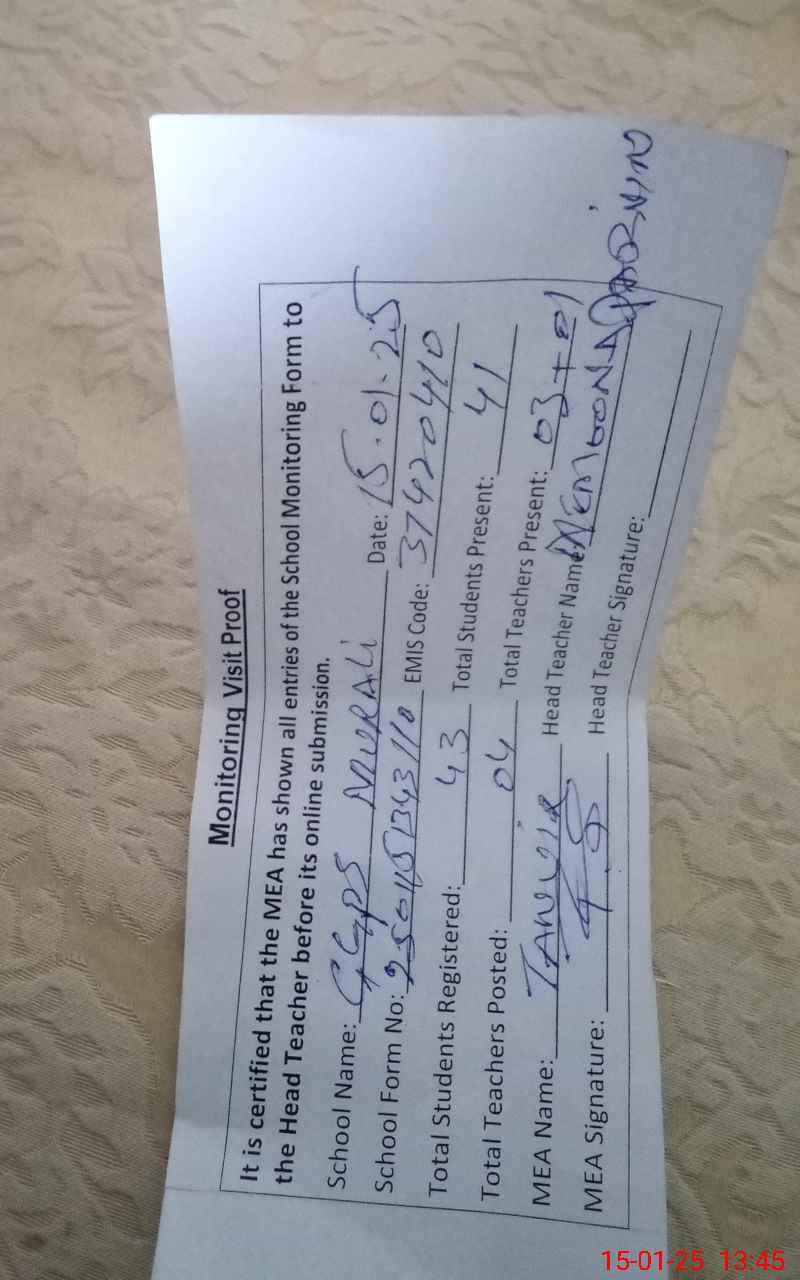 Monitoring Visit Proof
It is certified that the MEA has shown all entries of the School Monitoring Form to
the Head Teacher before its online submission.
School Name: GGPS NURALI Date: 15.01.25
School Form No: EMIS Code: 37420410
Total Students Registered: 43 Total Students Present: 41
Total Teachers Posted: 04 Total Teachers Present: 03+01
MEA Name: TANVIR Head Teacher Name:
MEA Signature: Head Teacher Signature:
15-01-25 13:45